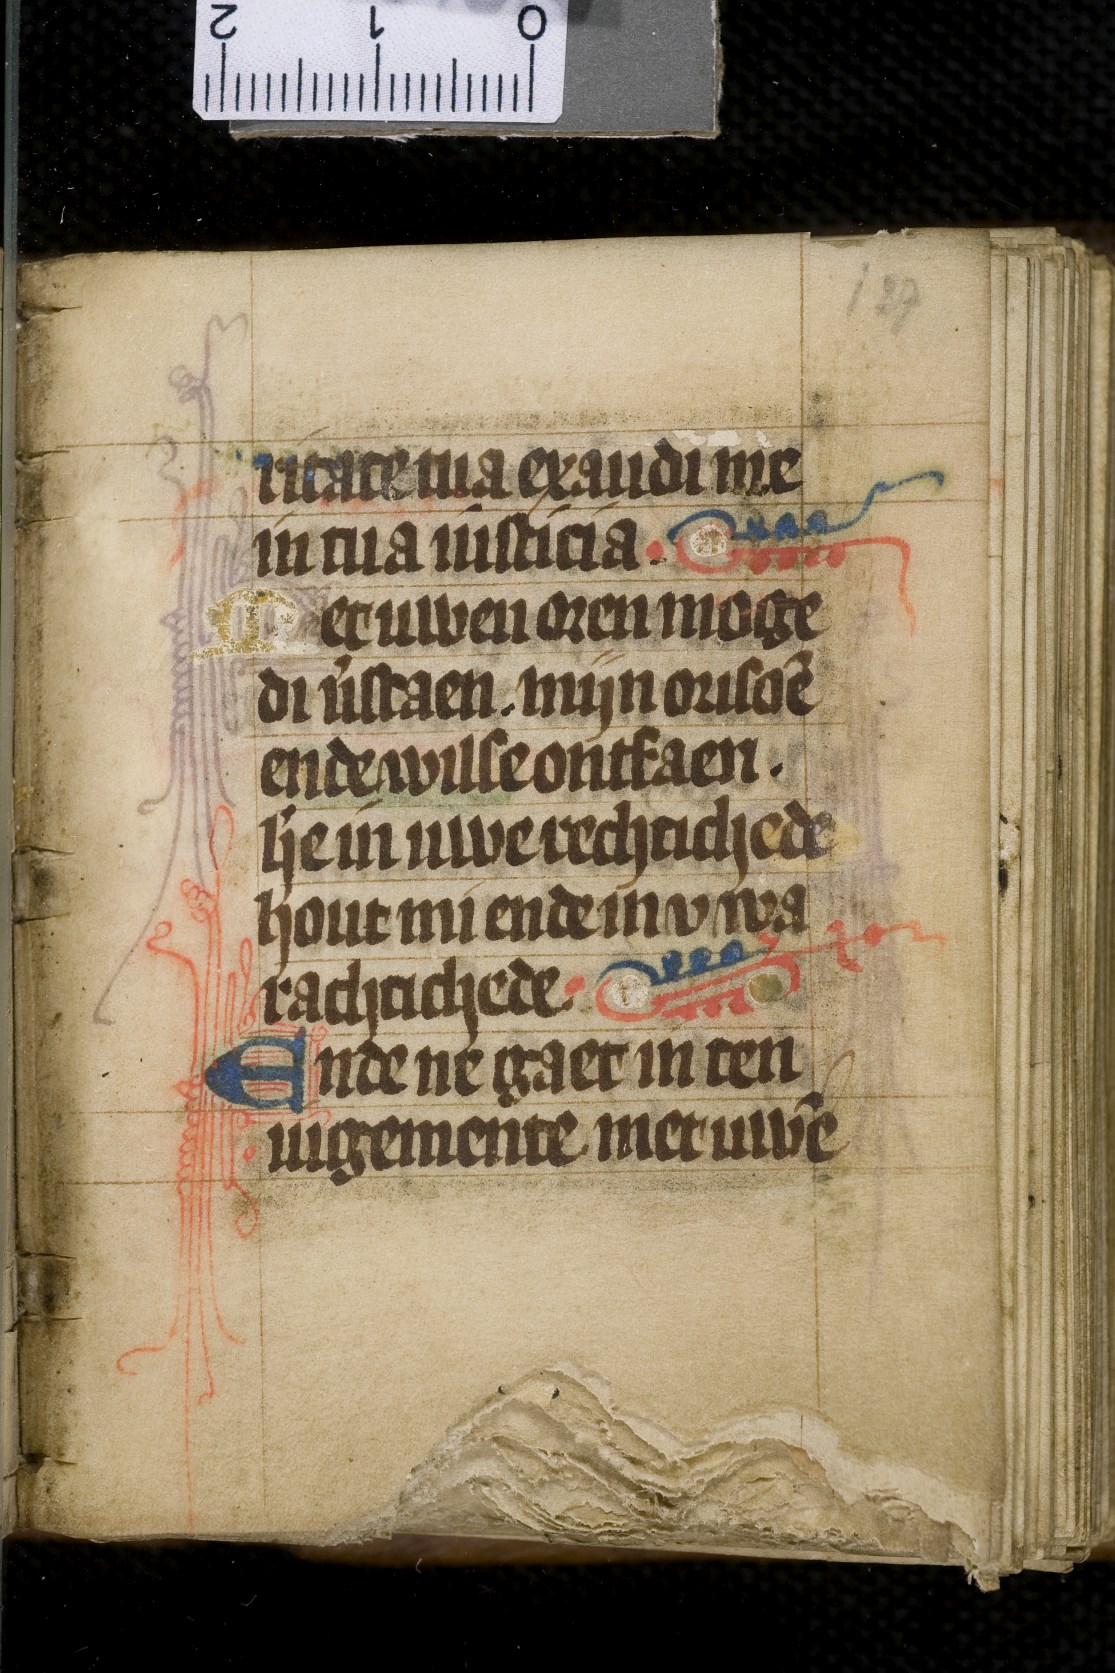 2 1 0
127
ritate tua exaudi me
in tua iusticia.
Met uwen oren moge
di v̕staen. mijn orisoē
ende wilse ontfaen.
h̕e in uwe rechtichede
hout mi ende in v wa
rachtichede.
Ende ne gaet in ten
iugemente met uwē